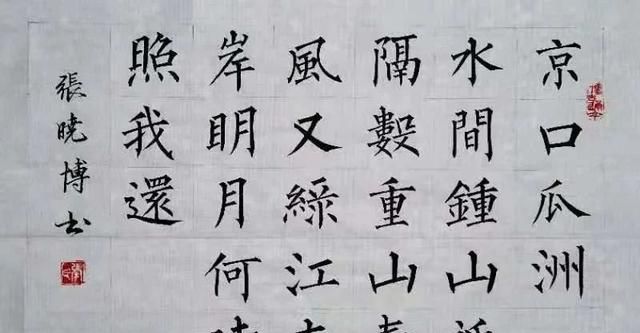 京口瓜洲
水間鍾山
隔數重山
風又綠江
岸明月何
照我還
張曉博书